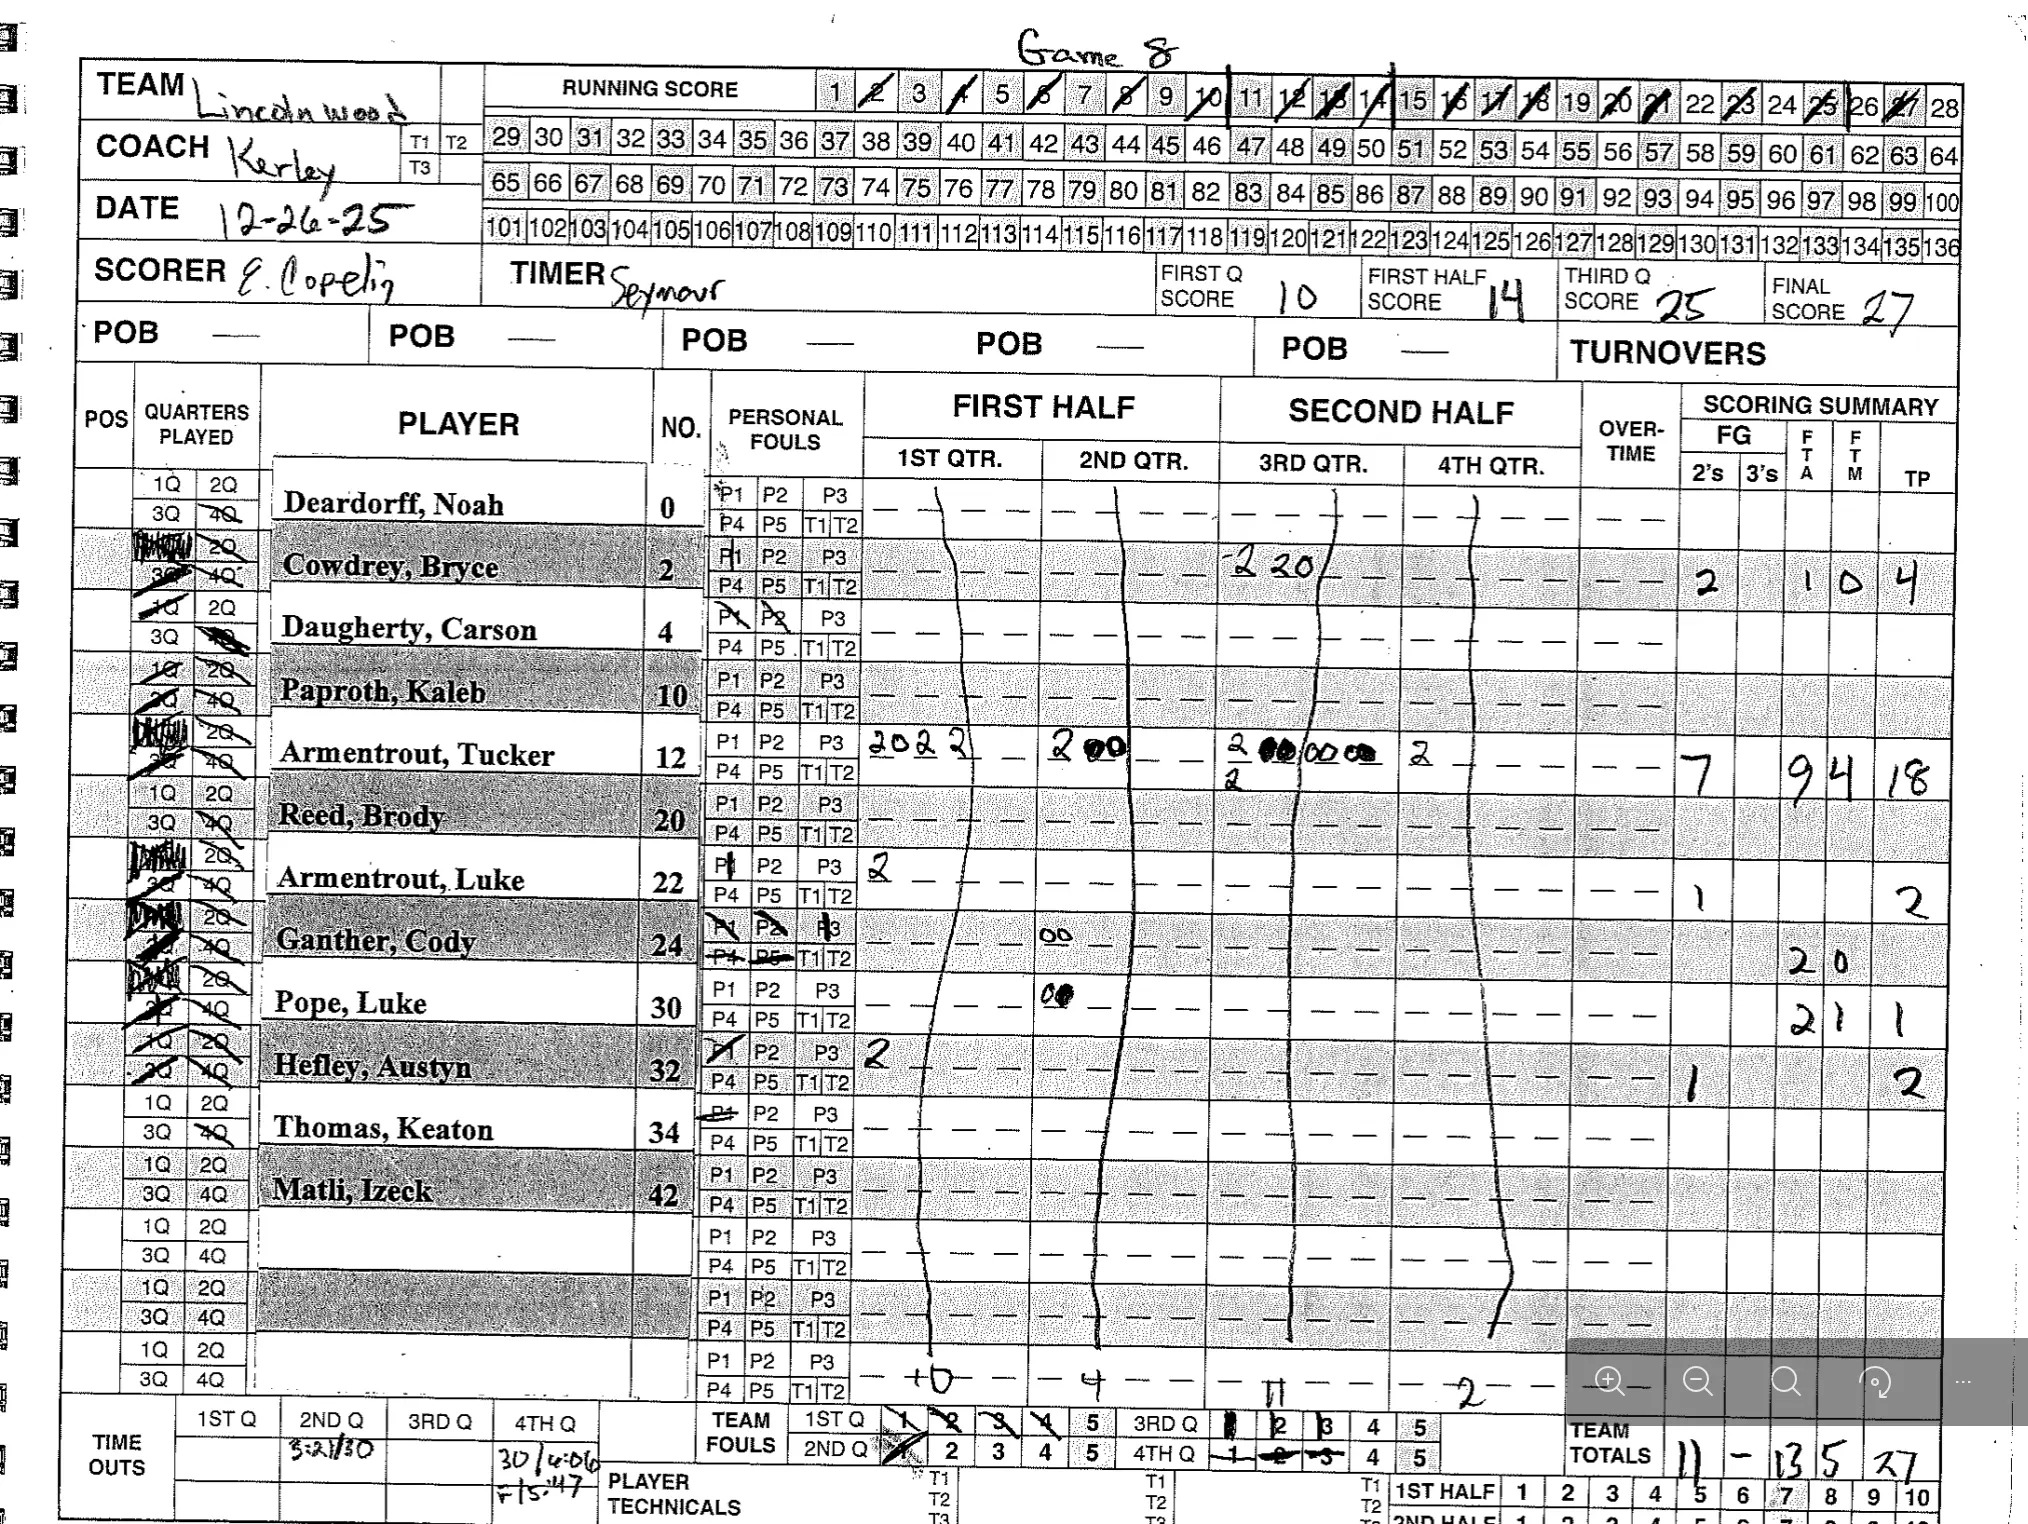 Game 8
TEAM Lincolnwood RUNNING SCORE 1 2 3 4 5 6 7 8 9 10 11 12 13 14 15 16 17 18 19 20 21 22 23 24 25 26 27 28
COACH Kerley T1 T2 T3 29 30 31 32 33 34 35 36 37 38 39 40 41 42 43 44 45 46 47 48 49 50 51 52 53 54 55 56 57 58 59 60 61 62 63 64
65 66 67 68 69 70 71 72 73 74 75 76 77 78 79 80 81 82 83 84 85 86 87 88 89 90 91 92 93 94 95 96 97 98 99 100
DATE 12-26-25 101 102 103 104 105 106 107 108 109 110 111 112 113 114 115 116 117 118 119 120 121 122 123 124 125 126 127 128 129 130 131 132 133 134 135 136
SCORER E. Copelin TIMER Seymour FIRST Q SCORE 10 FIRST HALF SCORE 14 THIRD Q SCORE 25 FINAL SCORE 27
POB — POB — POB — POB — POB — TURNOVERS
POS QUARTERS PLAYED PLAYER NO. PERSONAL FOULS FIRST HALF SECOND HALF OVER-TIME SCORING SUMMARY
1ST QTR. 2ND QTR. 3RD QTR. 4TH QTR. FG 2's 3's FTA FTM TP
1Q 2Q Deardorff, Noah 0 P1 P2 P3
3Q 4Q P4 P5 T1 T2
2Q Cowdrey, Bryce 2 P1 P2 P3 2 2 0 2 1 0 4
3Q 4Q P4 P5 T1 T2
1Q 2Q Daugherty, Carson 4 P1 P2 P3
3Q 4Q P4 P5 T1 T2
1Q 2Q Paproth, Kaleb 10 P1 P2 P3
3Q 4Q P4 P5 T1 T2
2Q Armentrout, Tucker 12 P1 P2 P3 2 0 2 2 2 00 2 00 00 00 2 7 9 4 18
3Q 4Q P4 P5 T1 T2 2
1Q 2Q Reed, Brody 20 P1 P2 P3
3Q 4Q P4 P5 T1 T2
2Q Armentrout, Luke 22 P1 P2 P3 2 1 2
3Q 4Q P4 P5 T1 T2
2Q Ganther, Cody 24 P1 P2 P3 00 2 0
3Q 4Q P4 P5 T1 T2
2Q Pope, Luke 30 P1 P2 P3 00 2 1 1
3Q 4Q P4 P5 T1 T2
1Q 2Q Hefley, Austyn 32 P1 P2 P3 2 1 2
3Q 4Q P4 P5 T1 T2
1Q 2Q Thomas, Keaton 34 P1 P2 P3
3Q 4Q P4 P5 T1 T2
1Q 2Q Matli, Izeck 42 P1 P2 P3
3Q 4Q P4 P5 T1 T2
1Q 2Q P1 P2 P3
3Q 4Q P4 P5 T1 T2
1Q 2Q P1 P2 P3
3Q 4Q P4 P5 T1 T2
1Q 2Q P1 P2 P3
3Q 4Q P4 P5 T1 T2 10 4 11 2
TIME OUTS 1ST Q 2ND Q 3RD Q 4TH Q TEAM FOULS 1ST Q 1 2 3 4 5 3RD Q 1 2 3 4 5 TEAM TOTALS 11 - 13 5 27
3:21/30 30/4:06 2ND Q 1 2 3 4 5 4TH Q 1 2 3 4 5
F/5:47 PLAYER TECHNICALS T1 T1 T1 1ST HALF 1 2 3 4 5 6 7 8 9 10
T2 T2 T2 2ND HALF 1
T3 T3